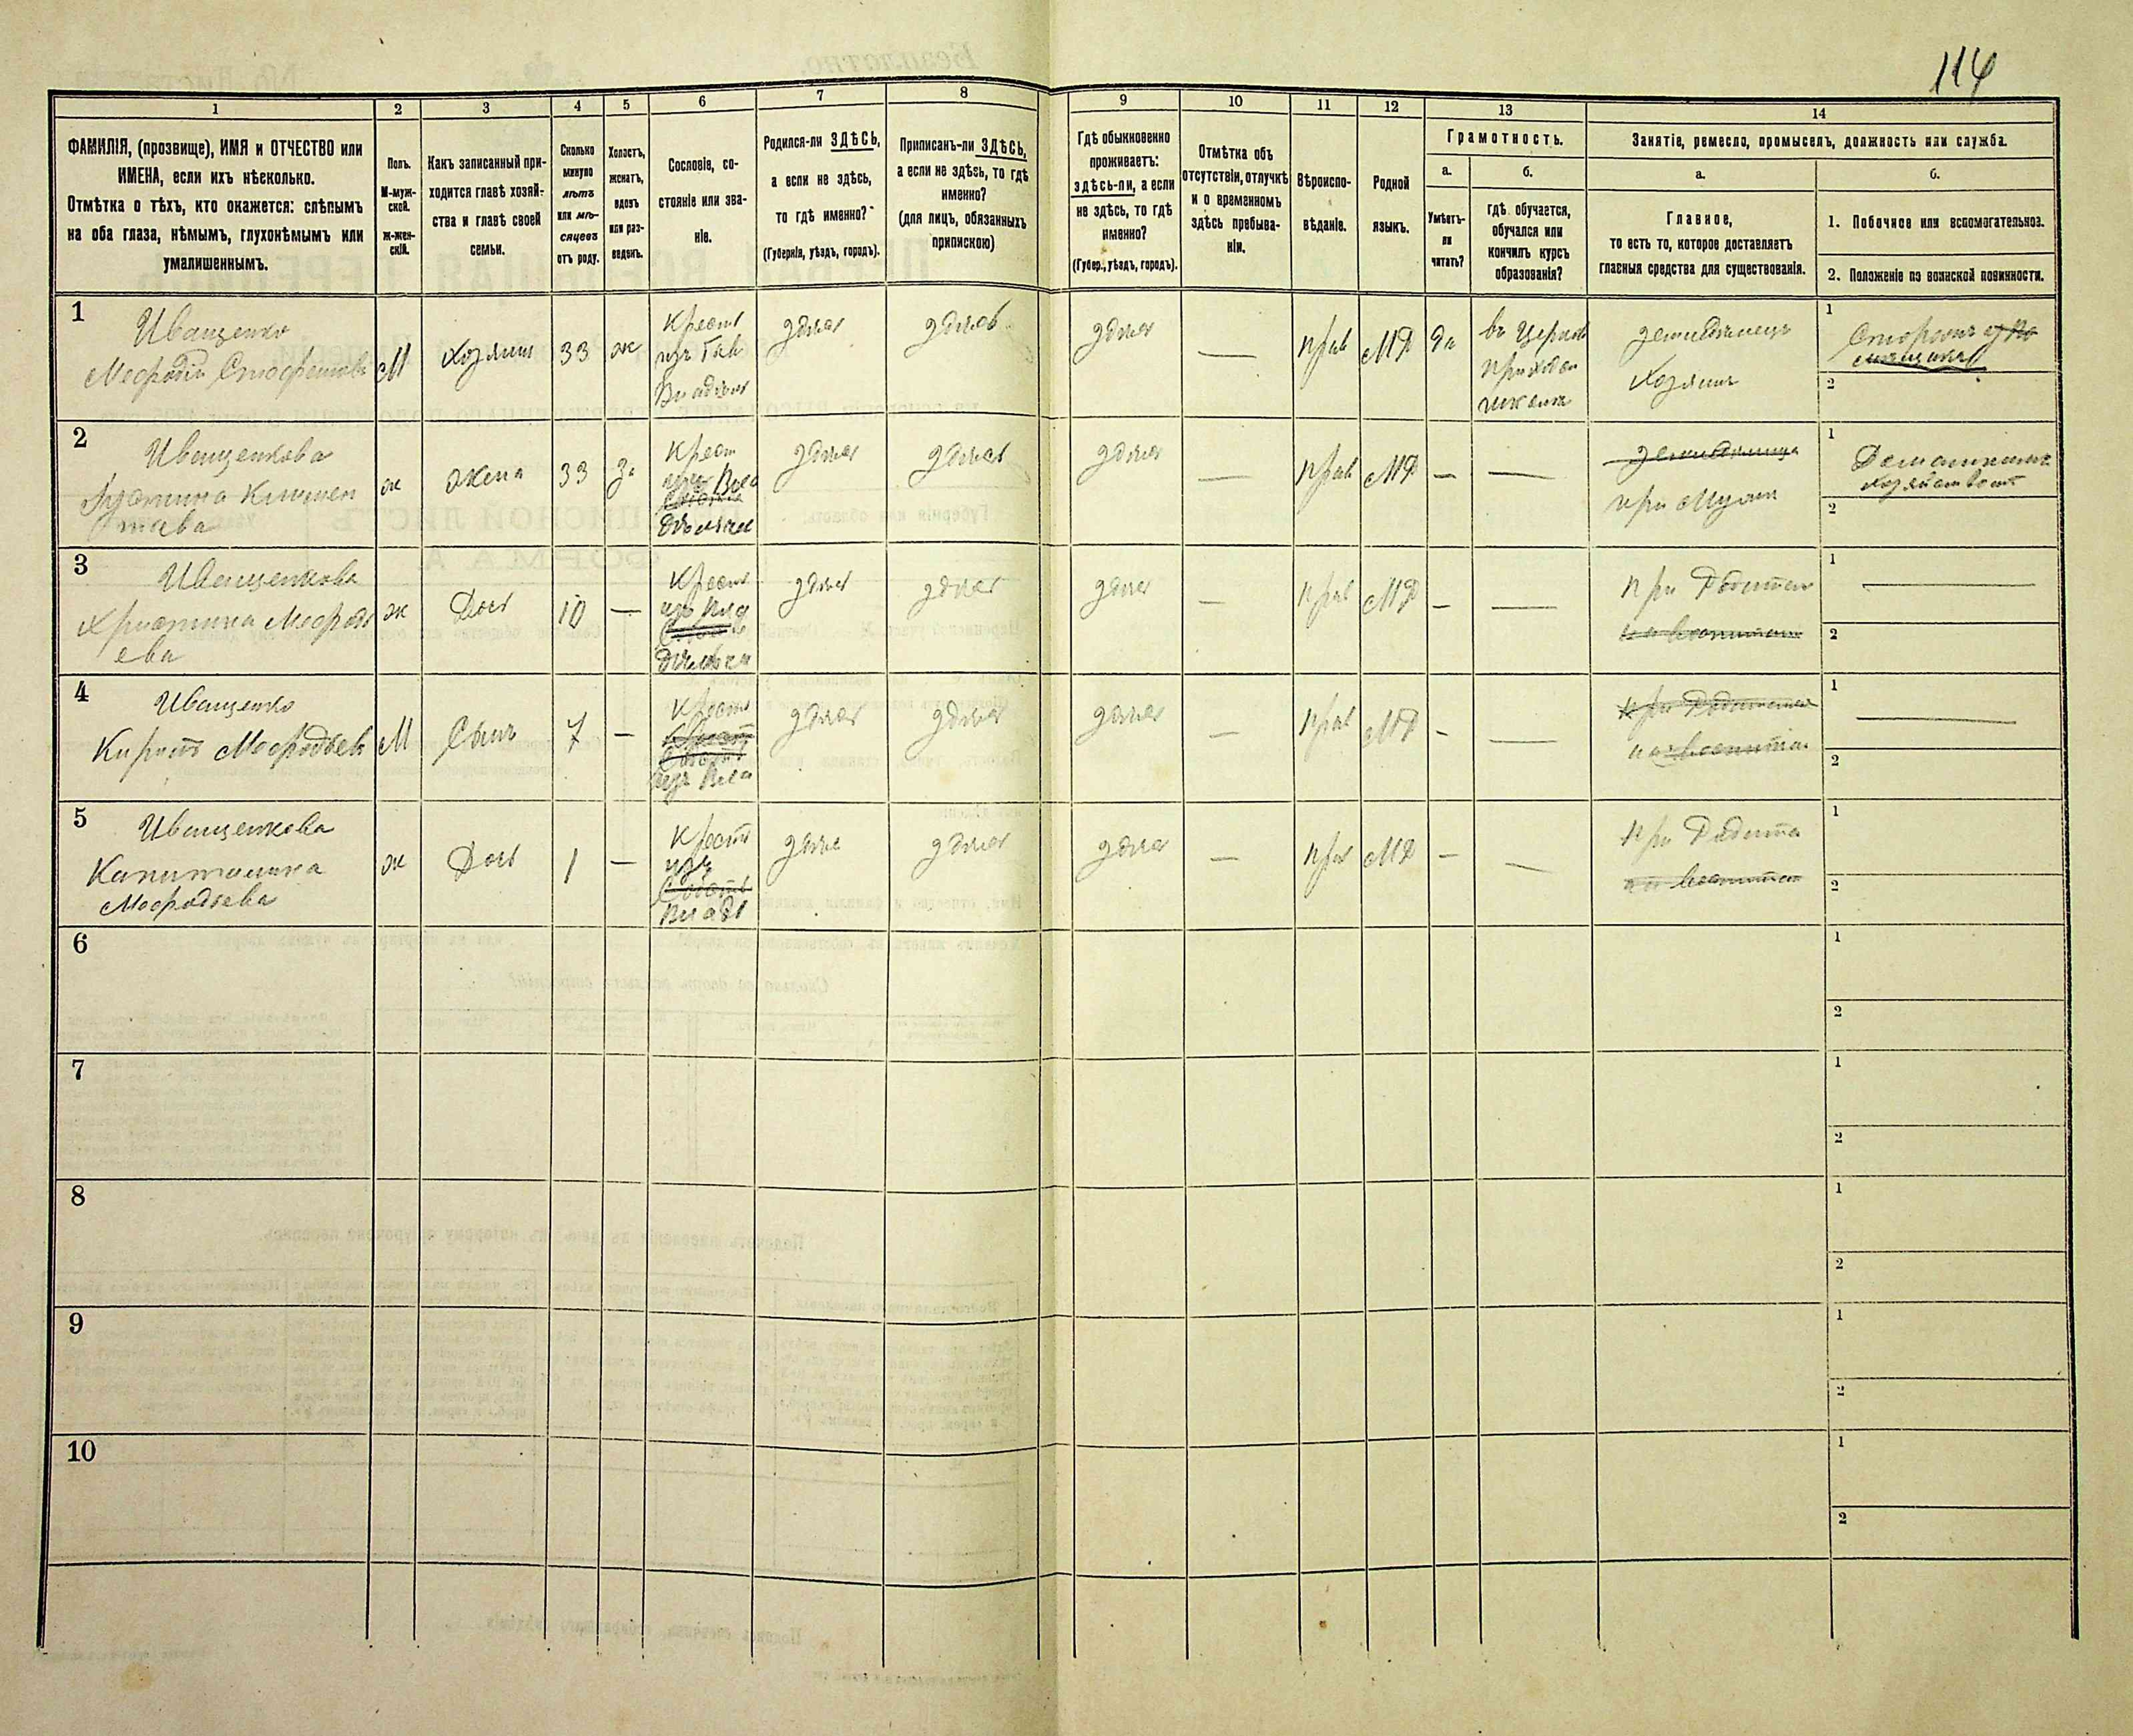 114
1
2
3
4
5
6
7
8
9
10
11
12
13
14
ФАМИЛІЯ, (прозвище), ИМЯ и ОТЧЕСТВО или
ИМЕНА, если ихъ нѣсколько.
Отмѣтка о тѣхъ, кто окажется: слѣпымъ
на оба глаза, нѣмымъ, глухонѣмымъ или
умалишеннымъ.
Полъ.
М-муж-
ской.
ж-жен-
скій.
Какъ записанный при-
ходится главѣ хозяй-
ства и главѣ своей
семьи.
Сколько
минуло
лѣтъ
или мѣ-
сяцевъ
отъ роду.
Холостъ,
женатъ,
вдовъ
или раз-
веденъ.
Сословіе, со-
стояніе или зва-
ніе.
Родился-ли ЗДѢСЬ,
а если не здѣсь,
то гдѣ именно?
(Губернія, уѣздъ, городъ).
Приписанъ-ли ЗДѢСЬ,
а если не здѣсь, то гдѣ
именно?
(для лицъ, обязанныхъ
припискою)
Гдѣ обыкновенно
проживаетъ:
здѣсь-ли, а если
не здѣсь, то гдѣ
именно?
(Губер., уѣздъ, городъ).
Отмѣтка объ
отсутствіи, отлучкѣ
и о временномъ
здѣсь пребыва-
ніи.
Вѣроиспо-
вѣданіе.
Родной
языкъ.
Грамотность.
а.
Умѣетъ-
ли
читать?
б.
гдѣ обучается,
обучался или
кончилъ курсъ
образованія?
Занятіе, ремесло, промыселъ, должность или служба.
а.
Главное,
то есть то, которое доставляетъ
главныя средства для существованія.
б.
1. Побочное или вспомогательное.
2. Положеніе по воинской повинности.
1
Иващенко
Мефодій
М
Хозяин
33
ж
Крест
изъ
здесь
здесь
здесь
—
прав
МР
да
въ Церков
приход
школе
земледелецъ
Хозяин
1
2
2
Иващенкова
ж
жена
33
за
Крест
здесь
здесь
здесь
—
прав
МР
—
—
при Муже
1
Домашнем
хозяйстве
2
3
Иващенкова
Христина Мефоди
ева
ж
Дочь
10
—
Крест
здесь
здесь
здесь
—
прав
МР
—
—
при Родител
1
—
2
4
Иващенко
Мефодьев
М
Сынъ
7
—
Крест
изъ Вла
здесь
здесь
здесь
—
прав
МР
—
—
1
—
2
5
Иващенкова
Капитолина
Мефодьева
ж
Дочь
1
—
Крест
изъ
здесь
здесь
здесь
—
прав
МР
—
—
при Родите
1
2
6
1
2
7
1
2
8
1
2
9
1
2
10
1
2